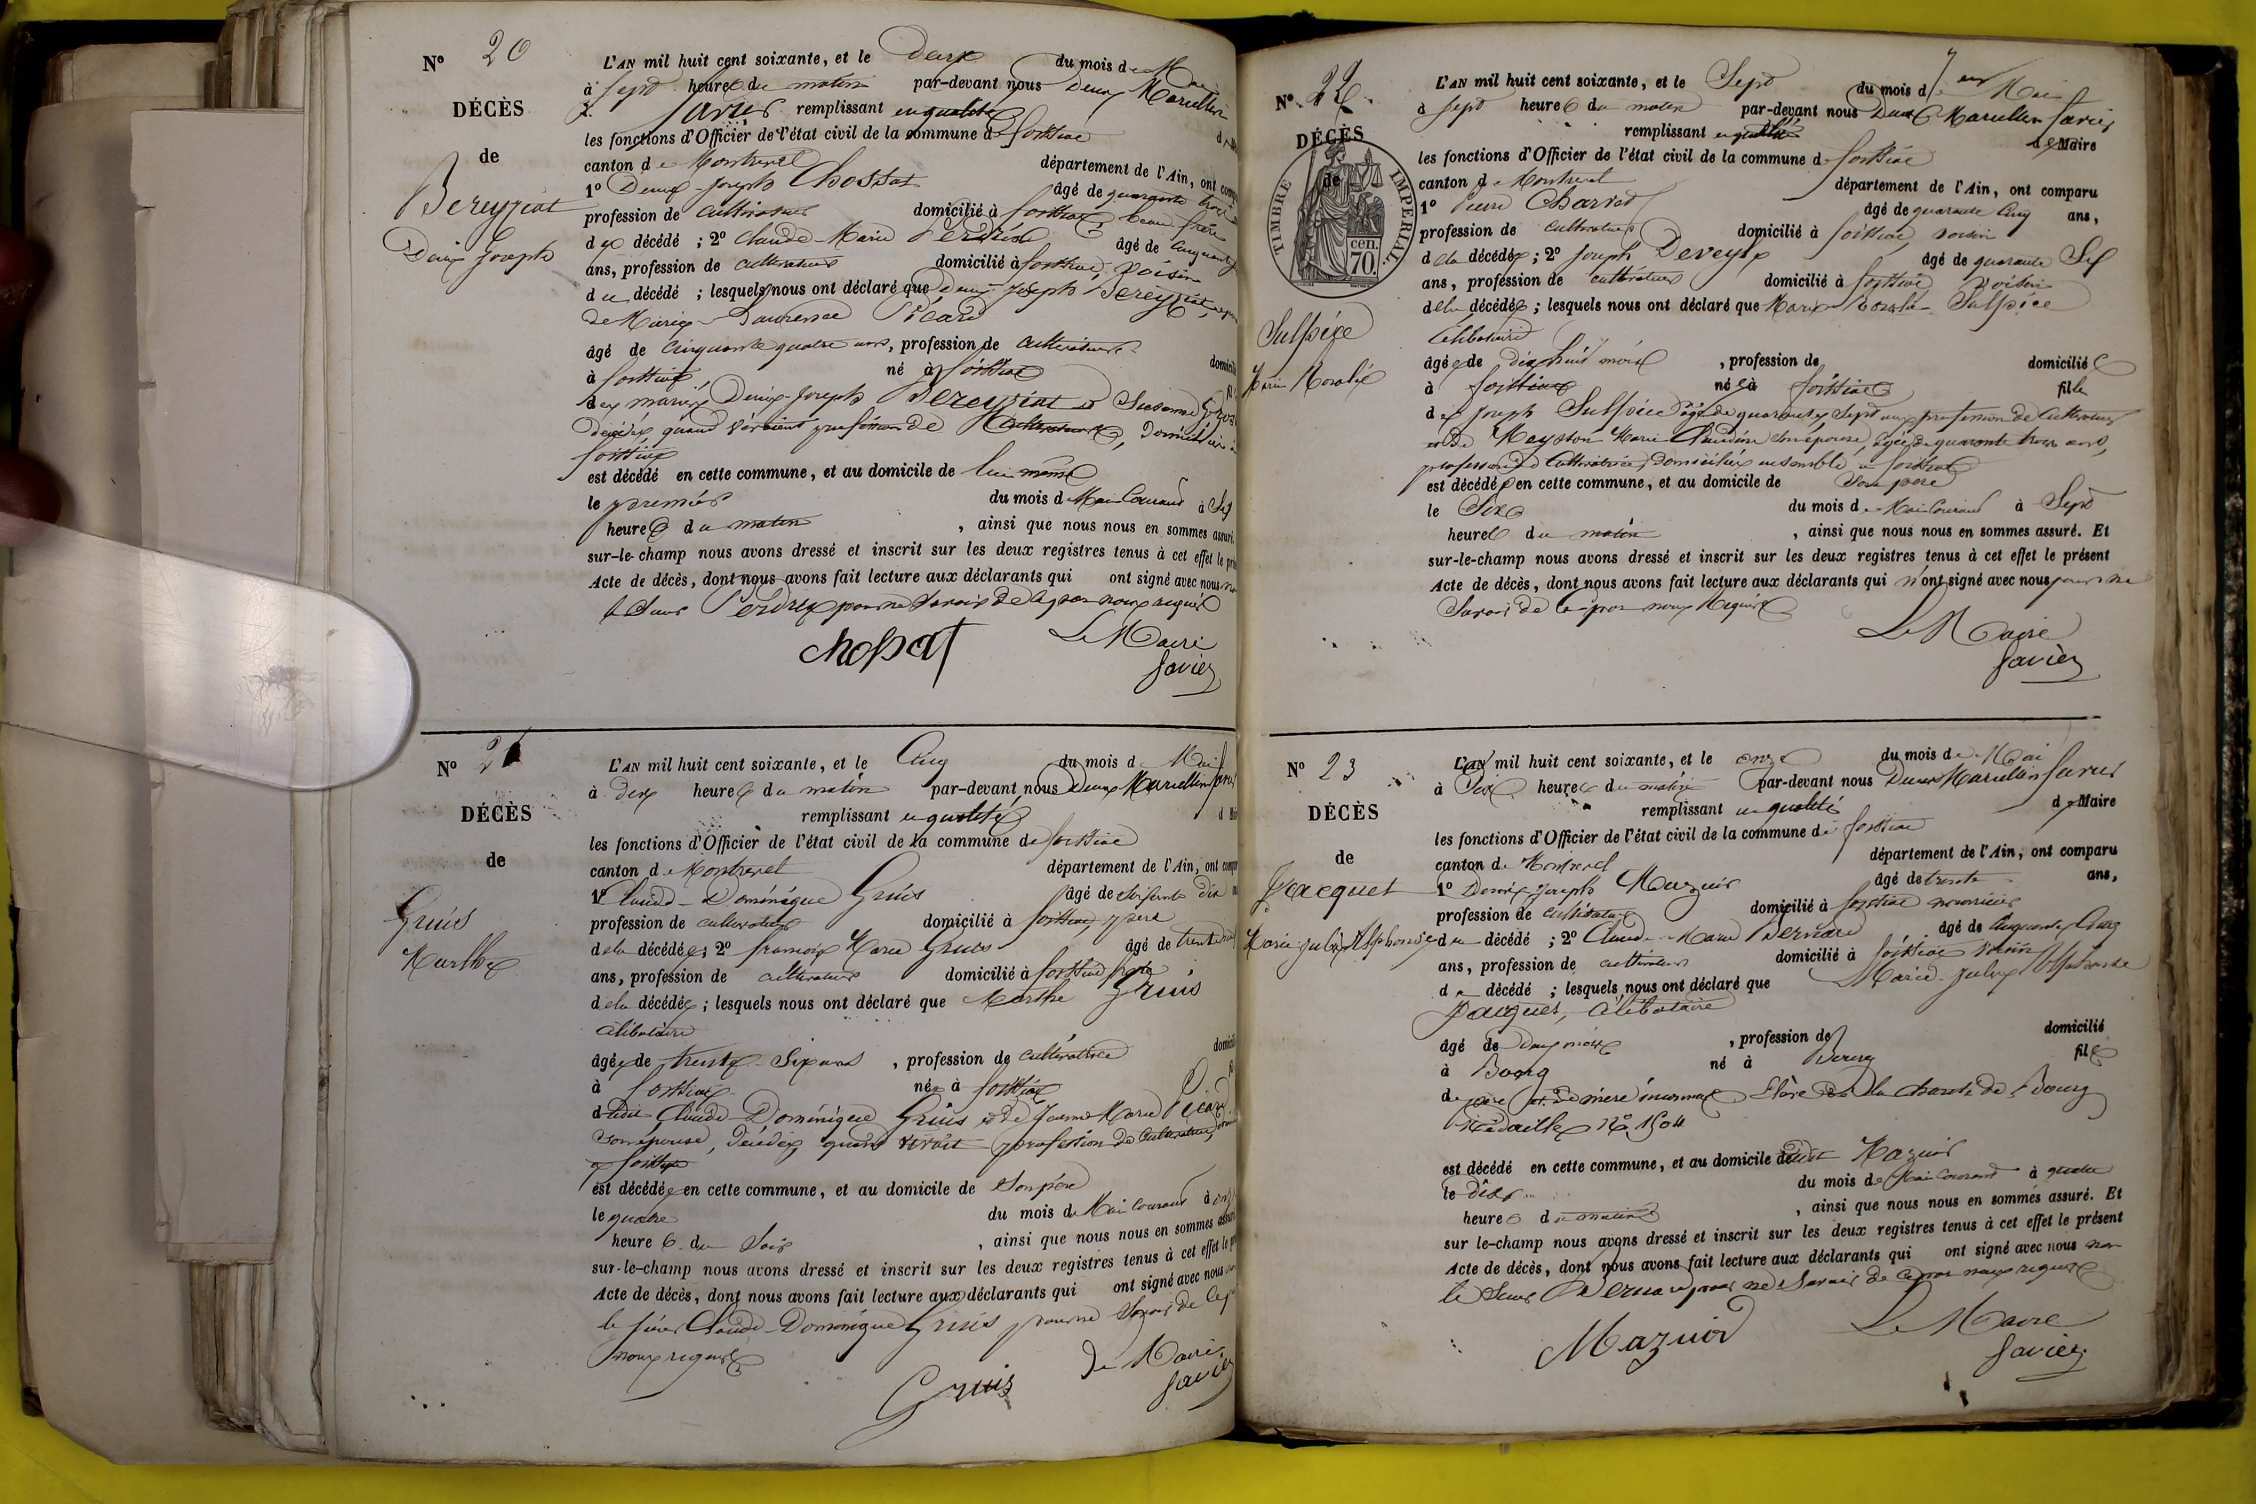 N° 20
DÉCÈS
de
Bereyziat
Denis Joseph
L'AN mil huit cent soixante, et le Deux du mois de Mai
à sept heures du matin par-devant nous Denis Marcellin
remplissant en qualité
les fonctions d'Officier de l'état civil de la commune de foissiat
canton de Montrevel département de l'Ain, ont
1° Denis Joseph Chossat âgé de quarante
profession de cultivateur domicilié à foissiat beau frère
du décédé ; 2° Claude Marie Perdrix âgé de cinquante
ans, profession de cultivateur domicilié à foissiat, voisin
du décédé ; lesquels nous ont déclaré que Denis Joseph Bereyziat,
de Marie Laurence Picard
âgé de cinquante quatre ans, profession de cultivateur
à foissiat né à foissiat
des mariés Denis Joseph Bereyziat et Susanne
décédés, quand vivaient profession de cultivateurs, Domiciliés à
foissiat
est décédé en cette commune, et au domicile de lui même
le premier du mois de Mai courant à
heures du matin , ainsi que nous nous en sommes assuré.
sur-le-champ nous avons dressé et inscrit sur les deux registres tenus à cet effet le
Acte de décès, dont nous avons fait lecture aux déclarants qui ont signé avec nous
le Sieur Perdrix pour ne savoir de ce par nous requis
chossat
Le Maire
N° 21
DÉCÈS
de
Gruis
Marthe
L'AN mil huit cent soixante, et le Cinq du mois de Mai
à dix heures du matin par-devant nous Denis Marcellin
remplissant en qualité
les fonctions d'Officier de l'état civil de la commune de foissiat
canton de Montrevel département de l'Ain, ont
1° Claude Dominique Gruis âgé de soixante dix
profession de cultivateur domicilié à foissiat, père
de la décédée; 2° françois Marie Gruis âgé de trente
ans, profession de cultivateur domicilié à foissiat frère
de la décédée ; lesquels nous ont déclaré que Marthe Gruis
célibataire
âgée de trente Six ans , profession de cultivatrice
à foissiat née à foissiat
dudit Claude Dominique Gruis et de Jeanne Marie Picard
son épouse, décédée, quand vivait profession de cultivatrice,
à foissiat
est décédée en cette commune, et au domicile de son père
le quatre du mois de Mai courant à onze
heures du soir , ainsi que nous nous en sommes
sur-le-champ nous avons dressé et inscrit sur les deux registres tenus à cet effet le
Acte de décès, dont nous avons fait lecture aux déclarants qui ont signé avec nous
le sieur Claude Dominique Gruis pour ne savoir de ce par
nous requis
Gruis
Le Maire
N° 22
DÉCÈS
de
TIMBRE IMPERIAL
cen. 70.
Sulpice
Marie Rosalie
L'AN mil huit cent soixante, et le Sept du mois de Mai
à sept heures du matin par-devant nous Denis Marcellin
remplissant en qualité de Maire
les fonctions d'Officier de l'état civil de la commune de foissiat
canton de Montrevel département de l'Ain, ont comparu
1° Pierre âgé de quarante Cinq ans,
profession de cultivateur domicilié à foissiat, voisin
de la décédée; 2° Joseph Deveyle âgé de quarante
ans, profession de cultivateur domicilié à foissiat voisin
de la décédée ; lesquels nous ont déclaré que Marie Rosalie Sulpice
célibataire
âgée de dix huit mois , profession de domicilié
à foissiat née à foissiat fille
de Joseph Sulpice âgé de quarante Sept ans profession de Cultivateur
et de Meyston Marie Claudine son épouse, âgée de quarante trois ans,
profession de Cultivatrice, domiciliés ensemble à foissiat
est décédée en cette commune, et au domicile de son père
le Six du mois de Mai courant à Sept
heures du matin , ainsi que nous nous en sommes assuré. Et
sur-le-champ nous avons dressé et inscrit sur les deux registres tenus à cet effet le présent
Acte de décès, dont nous avons fait lecture aux déclarants qui n'ont signé avec nous pour ne
savoir de ce par nous Requis
Le Maire
N° 23
DÉCÈS
de
Jacquet
Marie Julie Alphonse
L'AN mil huit cent soixante, et le onze du mois de Mai
à Six heures du matin par-devant nous Denis Marcellin
remplissant en qualité de Maire
les fonctions d'Officier de l'état civil de la commune de foissiat
canton de Montrevel département de l'Ain, ont comparu
1° Denis Joseph Mazuir âgé de trente ans,
profession de cultivateur domicilié à foissiat nourricier
du décédé ; 2° Claude Marie Bernard âgé de cinquante Cinq
ans, profession de cultivateur domicilié à foissiat voisin
du décédé ; lesquels nous ont déclaré que Marie Alphonse
célibataire
âgé de , profession de domicilié
à Bourg né à Bourg fils
de père et de mère inconnus Elève de la charité de Bourg
Médaille N° 1504
est décédé en cette commune, et au domicile dudit Mazuir
le dix du mois de Mai courant à quatre
heures du matin , ainsi que nous nous en sommes assuré. Et
sur le-champ nous avons dressé et inscrit sur les deux registres tenus à cet effet le présent
Acte de décès, dont nous avons fait lecture aux déclarants qui ont signé avec nous non
le Sieur Bernard pour ne savoir de ce par nous requis
Mazuir
Le Maire